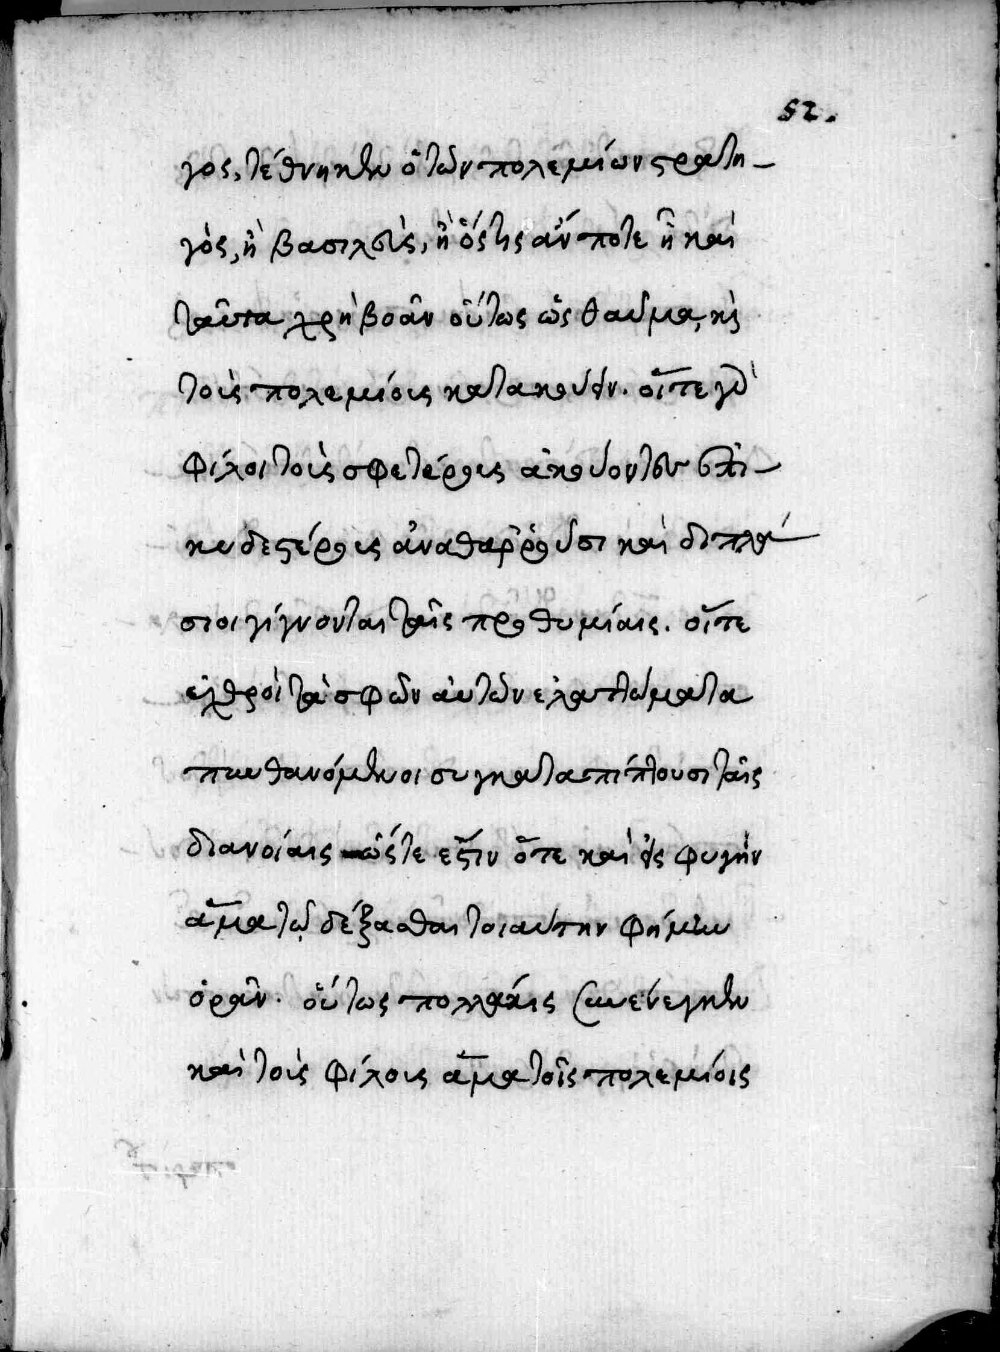 52.
γος, τέθνηκεν ὁ τῶν πολεμίων στρατη-
γὸς, ἢ βασιλεὺς, ἢ ὅστις ἄν ποτε ἦ καὶ
ταῦτα χρὴ βοᾶν οὕτως ὡς θαῦμα, κỳ
τοὺς πολεμίοις κατακούειν. οἵτε γὰρ
φίλοι τοὺς σφετέρους ἀκούοντες ἐπι-
κυδεστέρους ἀναθαῤῥοῦσι καὶ διπλά
σιοι γίγνονται ταῖς προθυμίαις. οἵτε
ἐχθροὶ τὰ σφῶν αὐτῶν ἐλαττώματα
πυνθανόμενοι συγκαταπίπτουσι ταῖς
διανοίαις ὥστε ἔστιν ὅτε καὶ εἰς φυγὴν
ἅμα τῷ δέξασθαι τοιαύτην φήμην
ὁρᾶν. οὕτως πολλάκις συνένεγκεν
καὶ τοὺς φίλους ἅμα τοῖς πολεμίοις